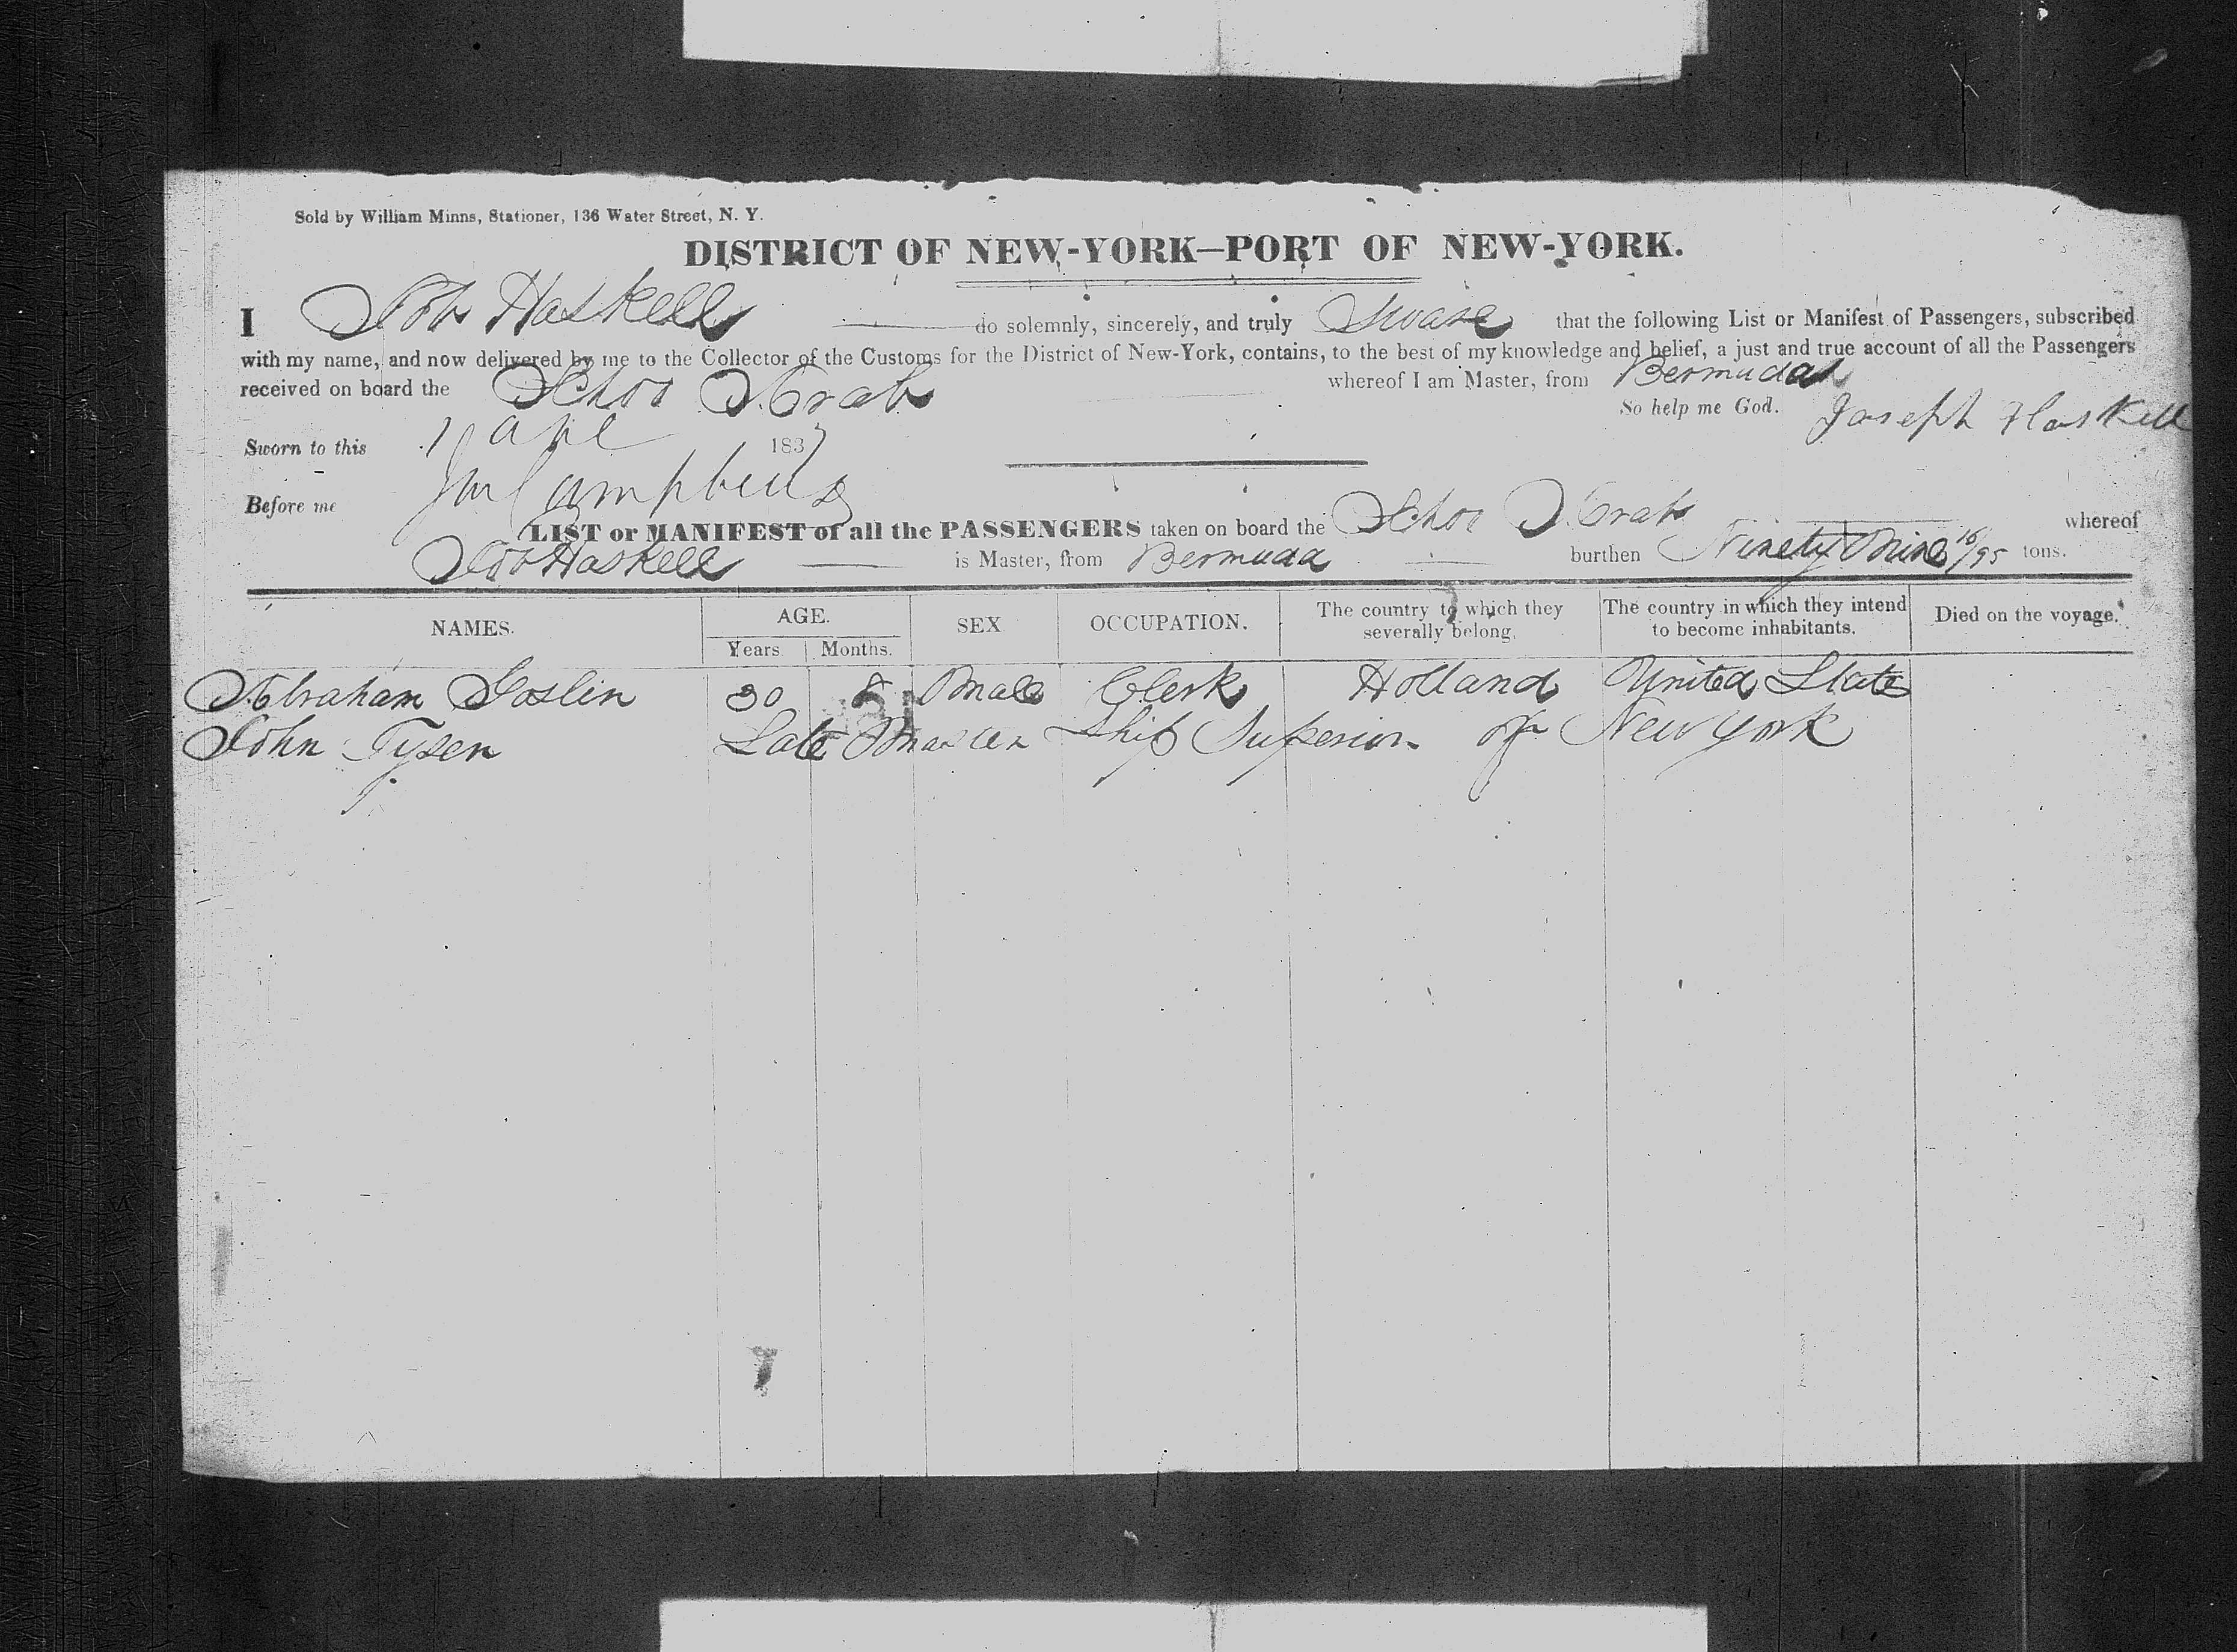 Sold by William Minns, Stationer, 136 Water Street, N. Y.
DISTRICT OF NEW-YORK—PORT OF NEW-YORK.
I Haskell do solemnly, sincerely, and truly Sware that the following List or Manifest of Passengers, subscribed
with my name, and now delivered by me to the Collector of the Customs for the District of New-York, contains, to the best of my knowledge and belief, a just and true account of all the Passengers
received on board the Schor Crab whereof I am Master, from Bermuda
So help me God. Joseph Haskell
Sworn to this 1 apl 1837
Before me Campbell
LIST or MANIFEST of all the PASSENGERS taken on board the Schor Crab whereof
Haskell is Master, from Bermuda burthen Ninety Nine 16/95 tons.
NAMES. AGE. SEX OCCUPATION. The country to which they severally belong, The country in which they intend to become inhabitants. Died on the voyage.
Years. Months.
Abraham Joslin 30 8 Male Clerk Holland United States
John Tysen Late Master Ship Superior of New York